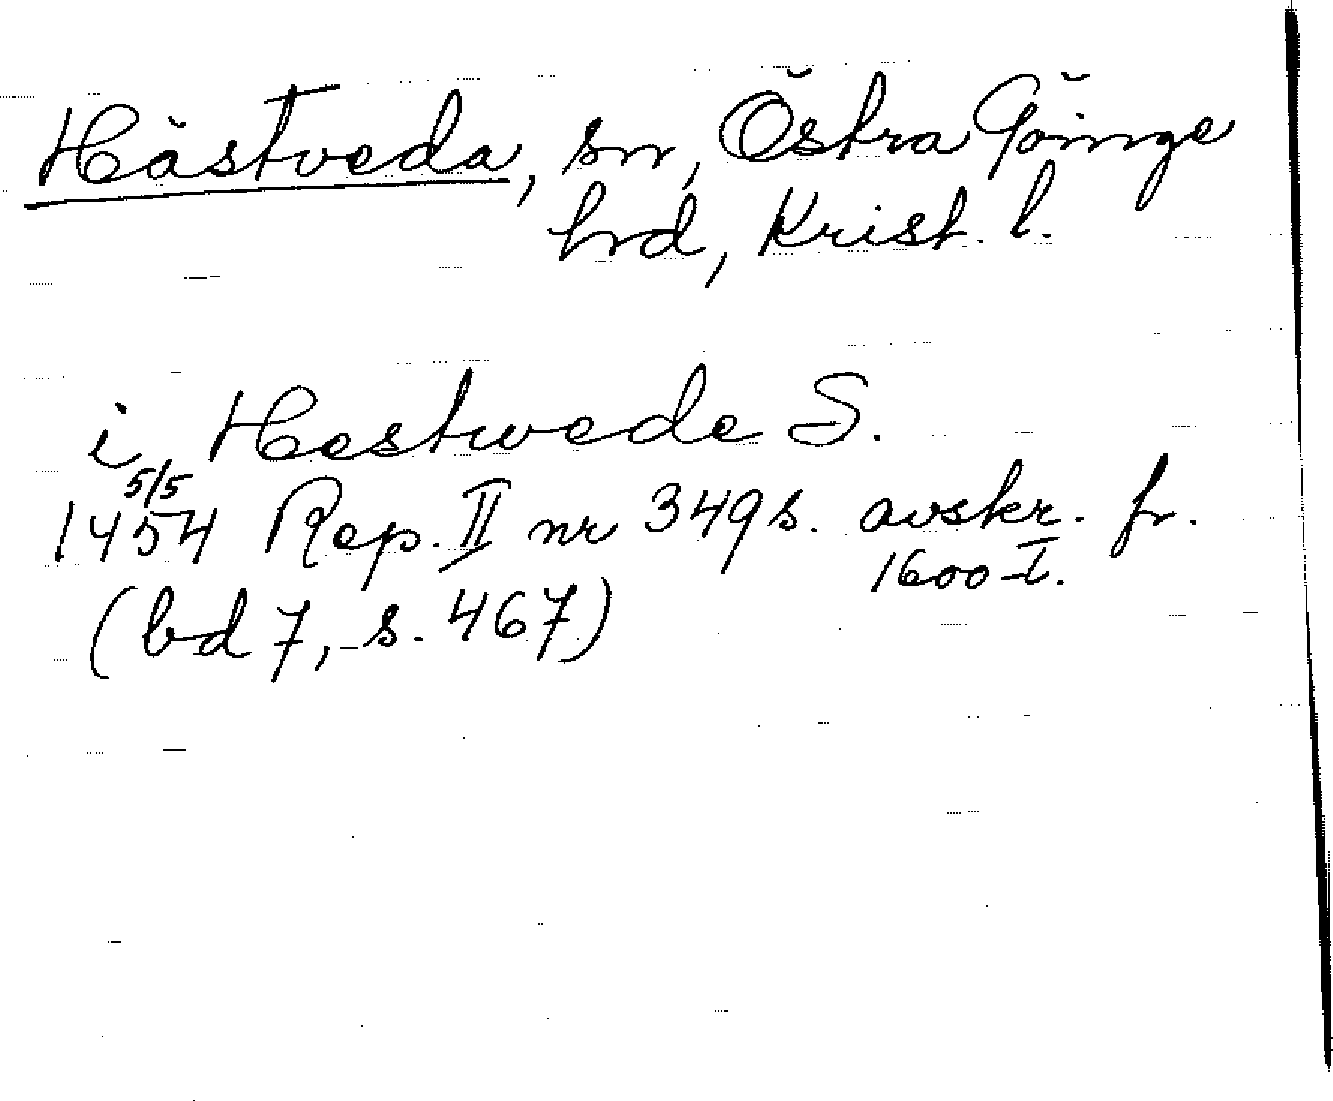 Hästveda, sn, Östra Göinge
hrd, Krist. l.
i Hestwede S.
5/5
1454 Rep. II nr 349 s. avskr. fr.
1600-t.
(bd 7, s. 467)